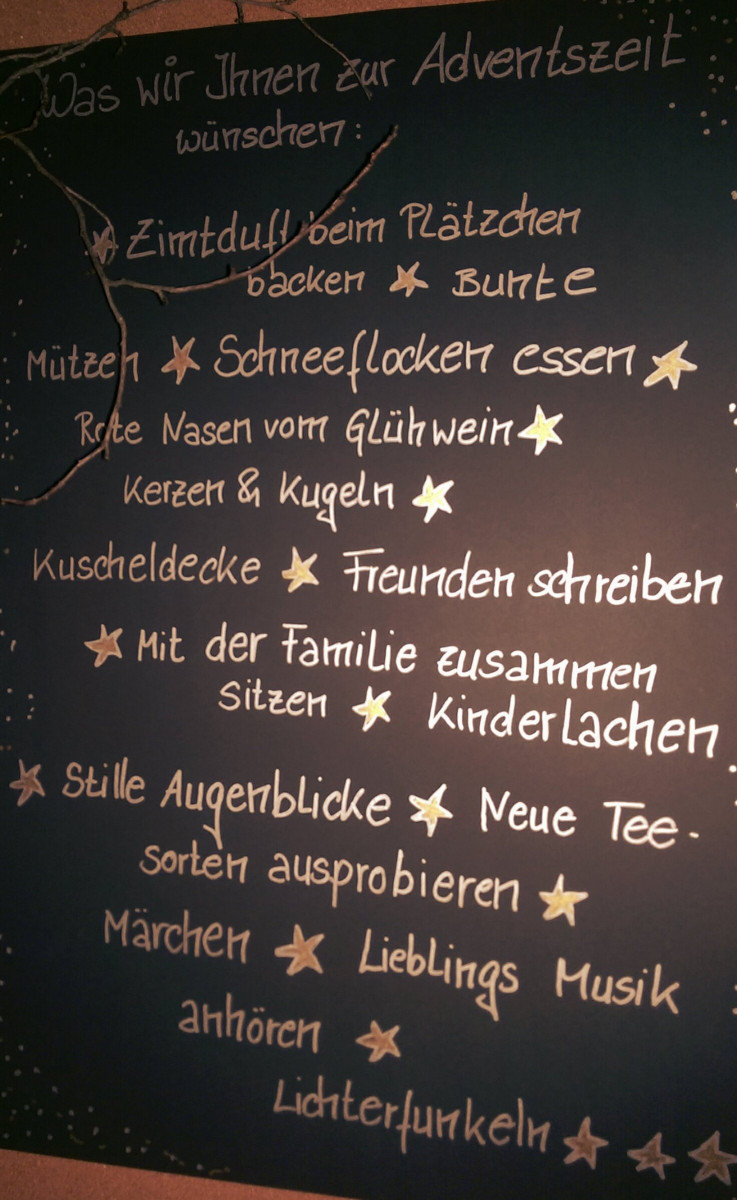 Was wir Ihnen zur Adventszeit
wünschen:
★ Zimtduft beim Plätzchen
backen ★ Bunte
Mützen ★ Schneeflocken essen ★
Rote Nasen vom Glühwein ★
Kerzen & Kugeln ★
Kuscheldecke ★ Freunden schreiben
★ Mit der Familie zusammen
sitzen ★ Kinderlachen
★ Stille Augenblicke ★ Neue Tee-
sorten ausprobieren ★
Märchen ★ Lieblings Musik
anhören ★
Lichterfunkeln ★ ★ ★